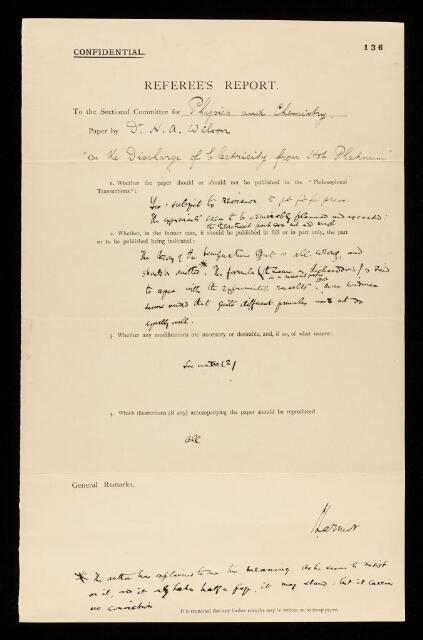 136
CONFIDENTIAL.
REFEREE'S REPORT.
To the Sectional Committee for Physics and Chemistry
Paper by Dr. H. A. Wilson
"On the Discharge of Electricity from Hot Platinum"
1. Whether the paper should or should not be published in the "Philosophical
Transactions":
Yes: subject to revision to get fit for press.
The experiments seem to be admirably planned and executed:
the theoretical part does not add much
2. Whether, in the former case, it should be published in full or in part only, the part
so to be published being indicated:
The theory of the temperature effect is all wrong, and
should be omitted*. The formula (the same as Richardson's) is said
to agree with the experimental results:
seems needed that quite different formulae would not do
equally well.
3. Whether any modifications are necessary or desirable, and, if so, of what nature:
See under (2)
4. Which illustrations (if any) accompanying the paper should be reproduced
All
General Remarks.
J Larmor
* The author has explained to me his meaning. As he seems to insist
on it, and it only takes half a page, it may stand: but it carries
no conviction
It is requested that any further remarks may be written on foolscap paper.